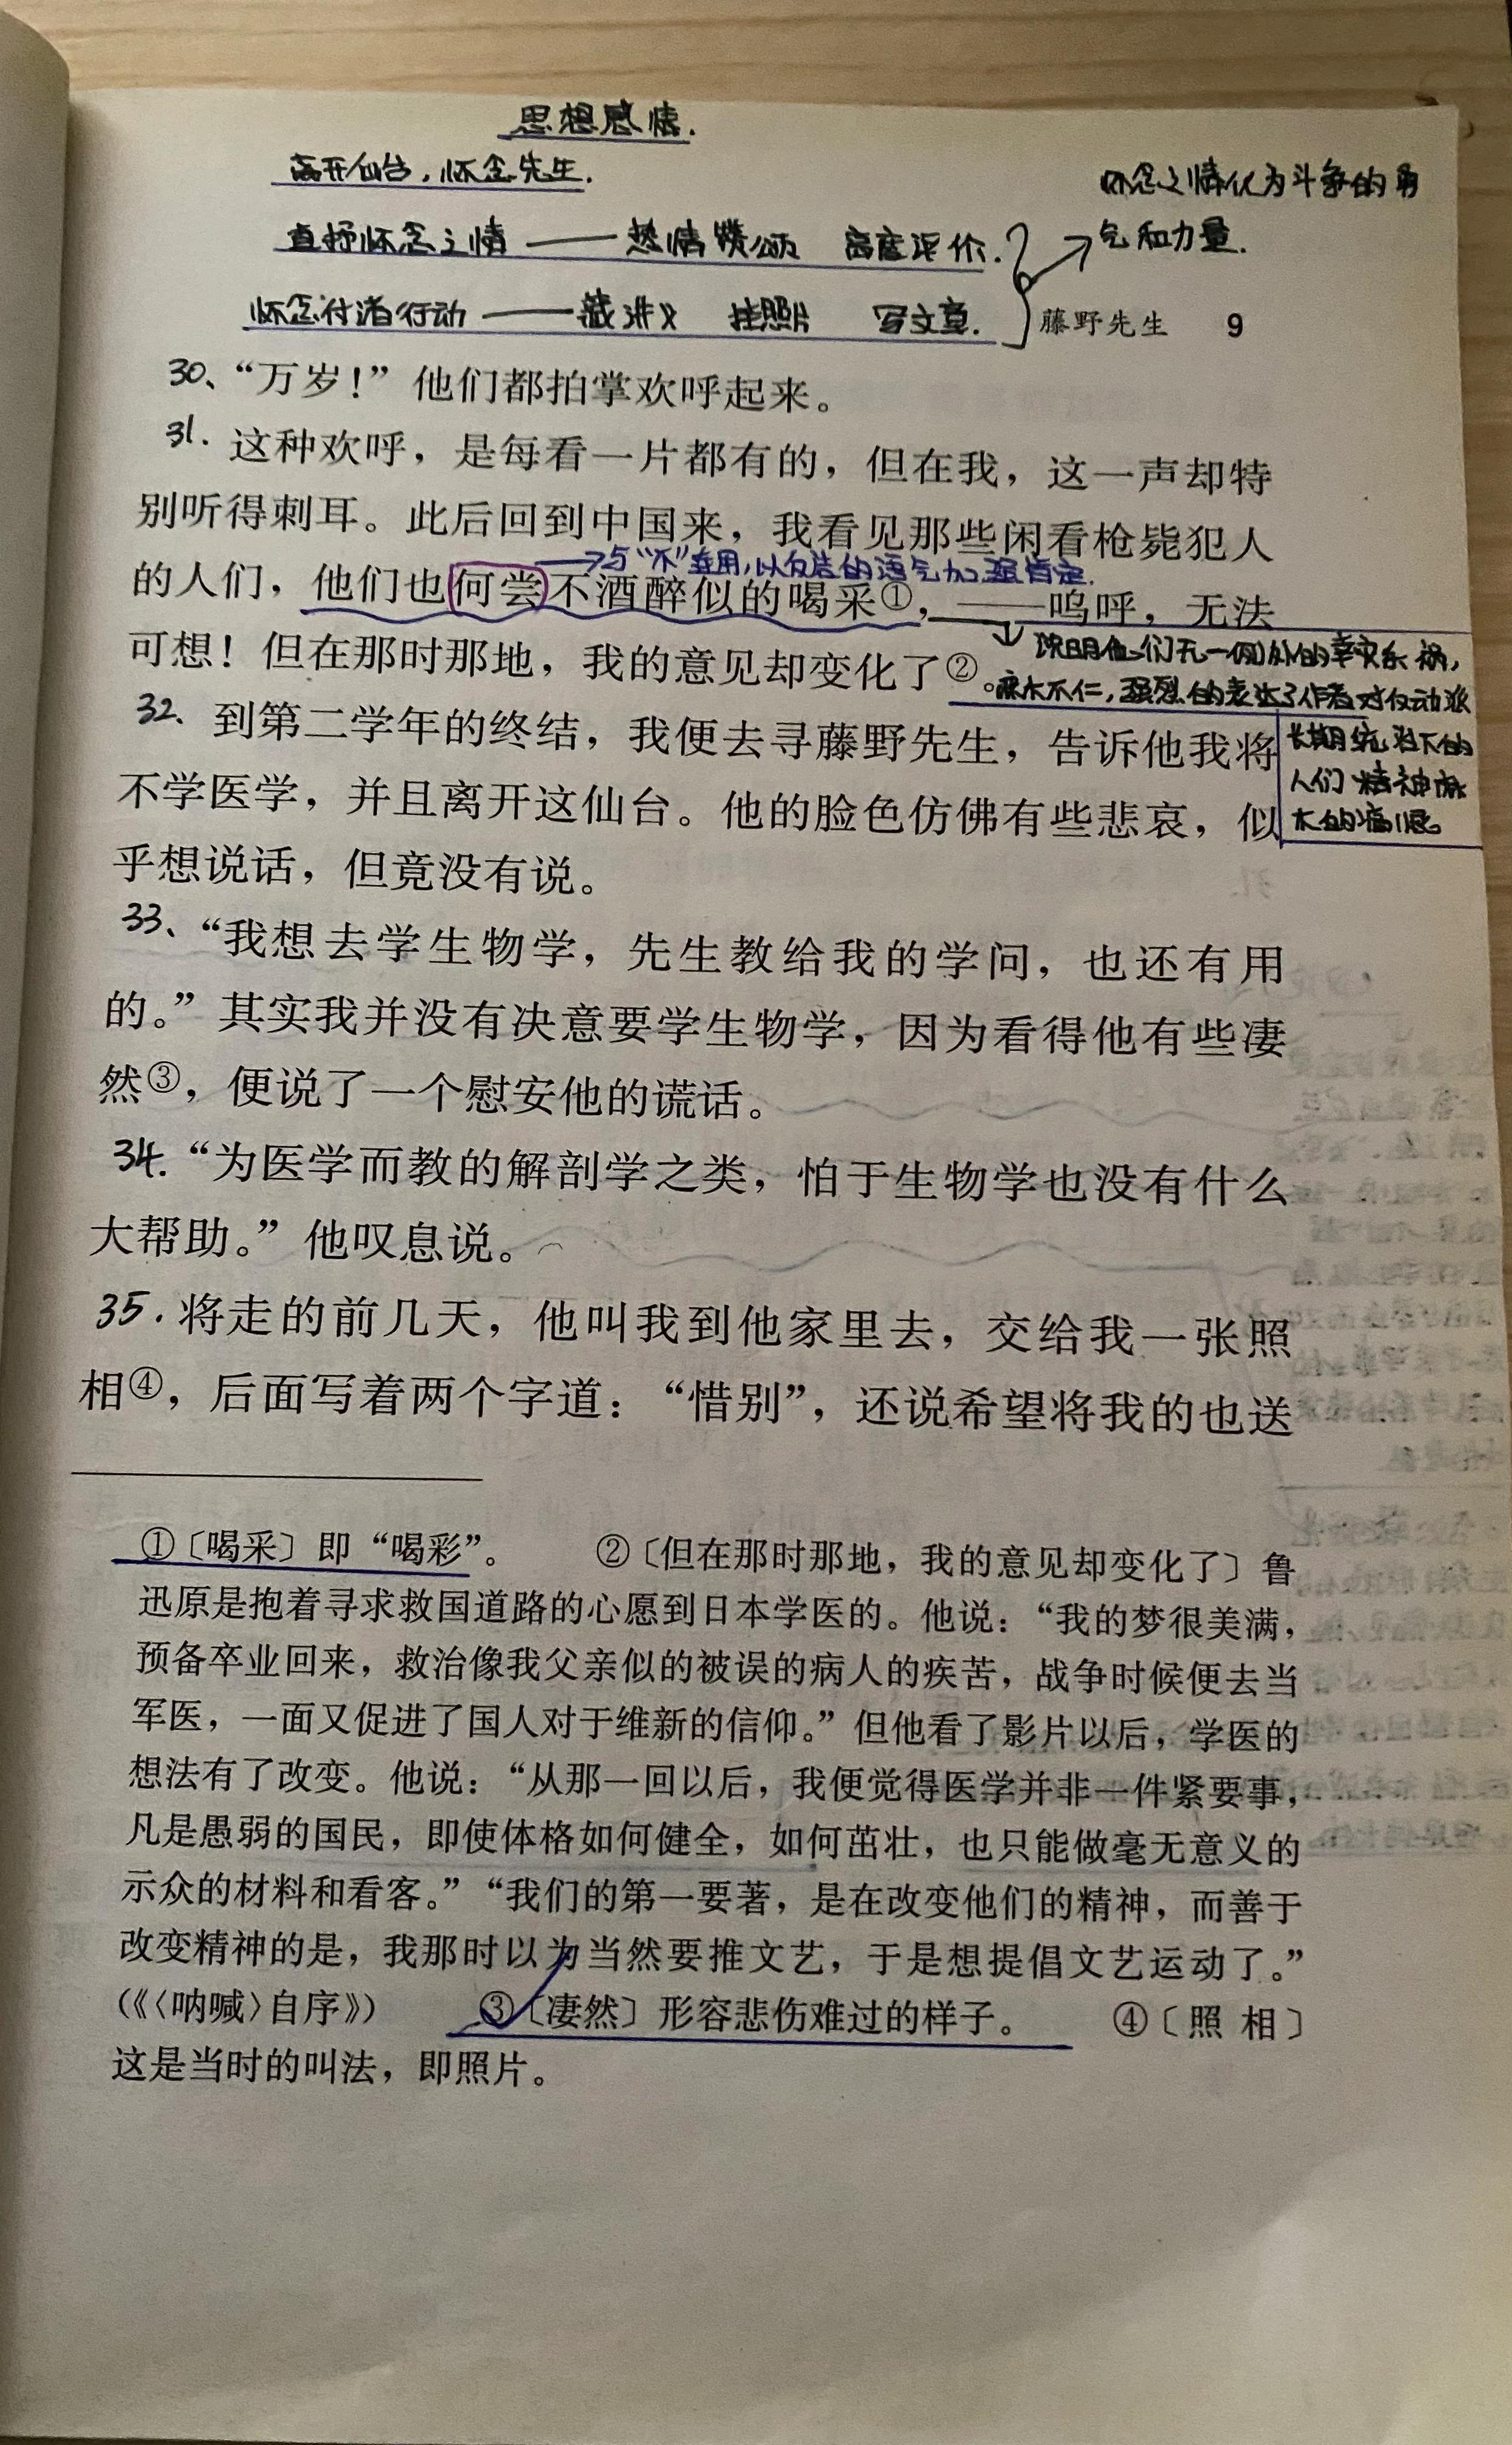 思想感情.
离开仙台，怀念先生.
直抒怀念之情 —— 热情赞颂 高度评价.
怀念付诸行动 —— 藏讲义 挂照片 写文章.
怀念之情化为斗争的勇
气和力量.
藤野先生 9
30、“万岁！”他们都拍掌欢呼起来。
31. 这种欢呼，是每看一片都有的，但在我，这一声却特
别听得刺耳。此后回到中国来，我看见那些闲看枪毙犯人
→与“不”连用，以反诘的语气加强肯定.
的人们，他们也何尝不酒醉似的喝采①，——呜呼，无法
可想！但在那时那地，我的意见却变化了②。
说明他们无一例外的幸灾乐祸，
麻木不仁，强烈的表达了作者对反动派
长期统治下的
人们精神麻
木的痛恨。
32. 到第二学年的终结，我便去寻藤野先生，告诉他我将
不学医学，并且离开这仙台。他的脸色仿佛有些悲哀，似
乎想说话，但竟没有说。
33、“我想去学生物学，先生教给我的学问，也还有用
的。”其实我并没有决意要学生物学，因为看得他有些凄
然③，便说了一个慰安他的谎话。
34. “为医学而教的解剖学之类，怕于生物学也没有什么
大帮助。”他叹息说。
35. 将走的前几天，他叫我到他家里去，交给我一张照
相④，后面写着两个字道：“惜别”，还说希望将我的也送
①〔喝采〕即“喝彩”。 ②〔但在那时那地，我的意见却变化了〕鲁
迅原是抱着寻求救国道路的心愿到日本学医的。他说：“我的梦很美满，
预备卒业回来，救治像我父亲似的被误的病人的疾苦，战争时候便去当
军医，一面又促进了国人对于维新的信仰。”但他看了影片以后，学医的
想法有了改变。他说：“从那一回以后，我便觉得医学并非一件紧要事，
凡是愚弱的国民，即使体格如何健全，如何茁壮，也只能做毫无意义的
示众的材料和看客。”“我们的第一要著，是在改变他们的精神，而善于
改变精神的是，我那时以为当然要推文艺，于是想提倡文艺运动了。”
（《〈呐喊〉自序》） ③〔凄然〕形容悲伤难过的样子。 ④〔照相〕
这是当时的叫法，即照片。